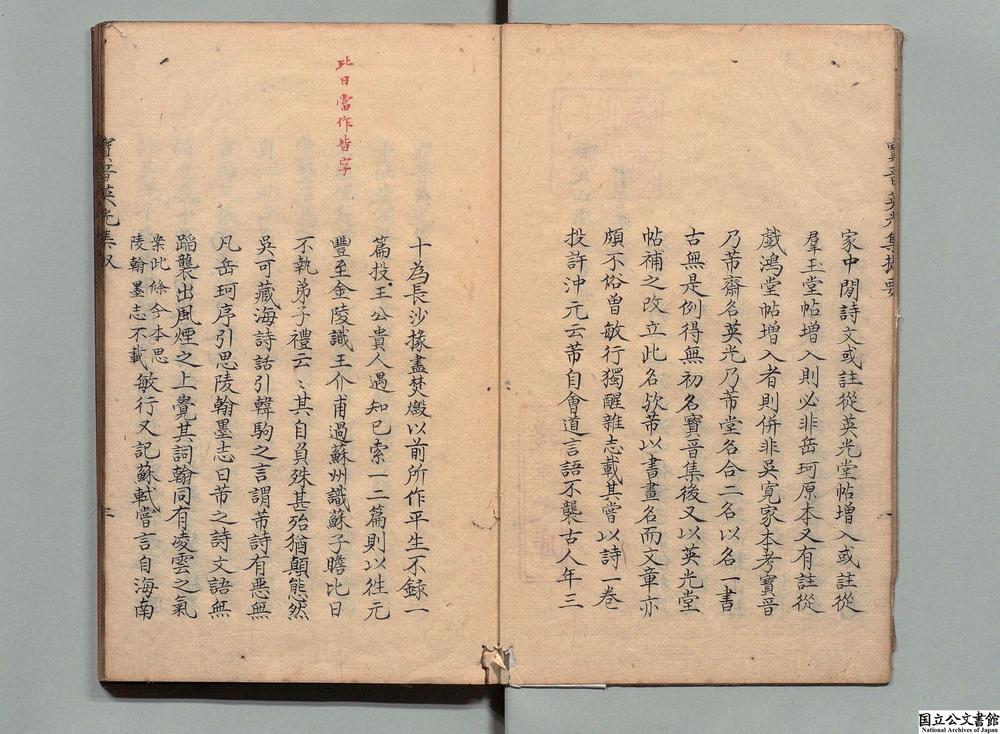 寶晉英光集提要
家中閒詩文或註從英光堂帖增入或註從
羣玉堂帖增入則必非岳珂原本又有註從
戲鴻堂帖增入者則併非吳寬家本考寶晉
乃芾齋名英光乃芾堂名合二名以名一書
古無是例得無初名寶晉集後又以英光堂
帖補之改立此名歟芾以書畫名而文章亦
頗不俗曾敏行獨醒雜志載其嘗以詩一卷
投許沖元云芾自會道言語不襲古人年三
十為長沙掾盡焚燬以前所作平生不錄一
篇投王公貴人遇知己索一二篇則以往元
豐至金陵識王介甫過蘇州識蘇子瞻比日
不執弟子禮云〻其自負殊甚殆猶顛態然
吳可藏海詩話引韓駒之言謂芾詩有惡無
凡岳珂序引思陵翰墨志曰芾之詩文語無
蹈襲出風煙之上覺其詞翰同有凌雲之氣
案此條今本思
陵翰墨志不載
敏行又記蘇軾嘗言自海南
比日當作皆字
寶晉英光集
國立公文書館
National Archives of Japan